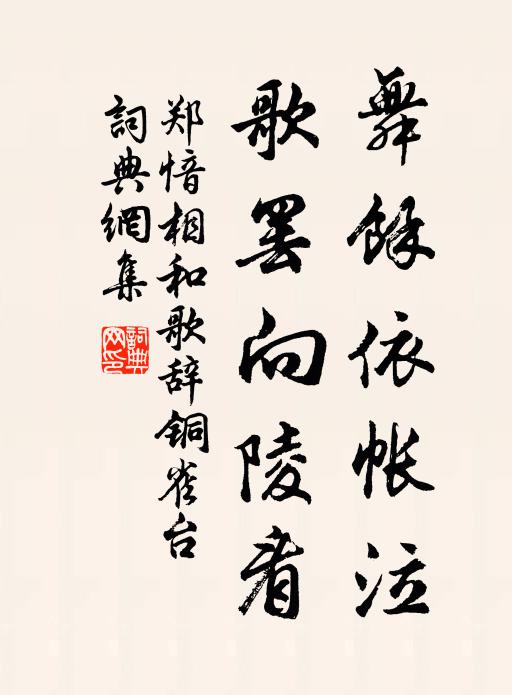 舞餘依帳泣
歌罢向陵看
郑愔相和歌辞铜雀台
詞典網集
詞典网印